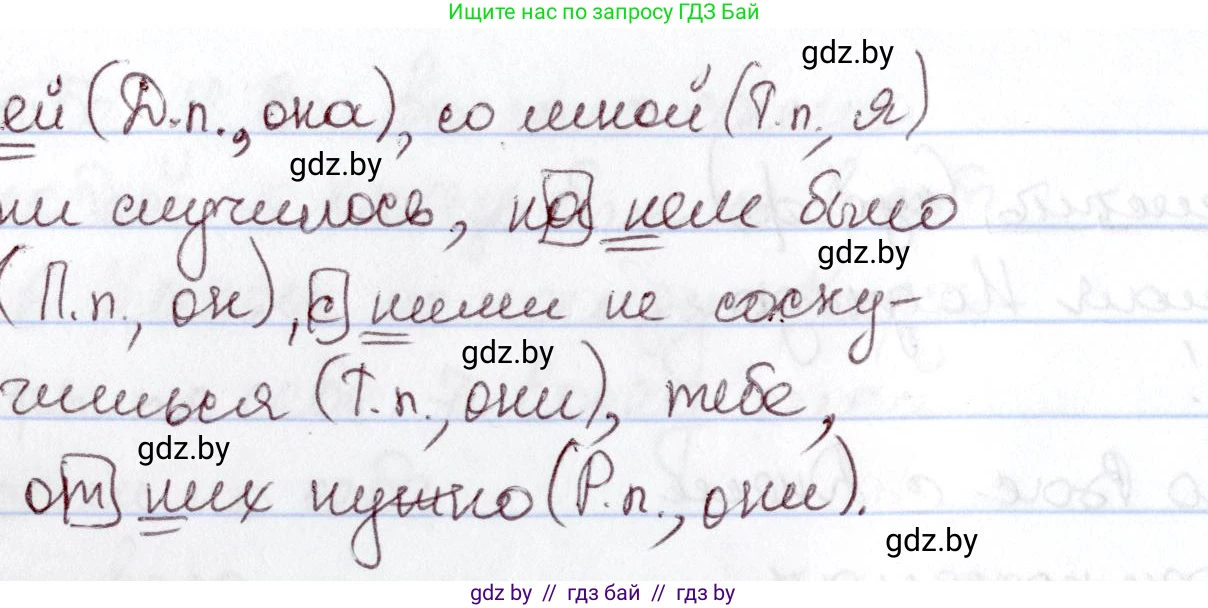 Ищите нас по запросу ГДЗ Бай
gdz.by
ей (Д.п., она), со мной (Т.п., я)
gdz.by
ни случилось, на нем было
gdz.by
(П.п., он), с ними не соску-
gdz.by
чишься (Т.п., они), тебе,
gdz.by
от них нужно (Р.п., они).
gdz.by
gdz by // гдз бай // гдз by